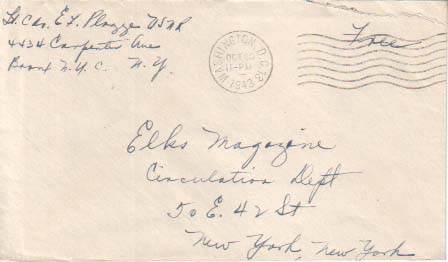 Lt. Cdr. E. L. Plagge USNR
4434 Carpenter Ave
Bronx N.Y.C. N.Y.
WASHINGTON, D.C.
OCT
11-PM
1943
Free
Elks Magazine
Circulation Dept
50 E. 42 St
New York, New York